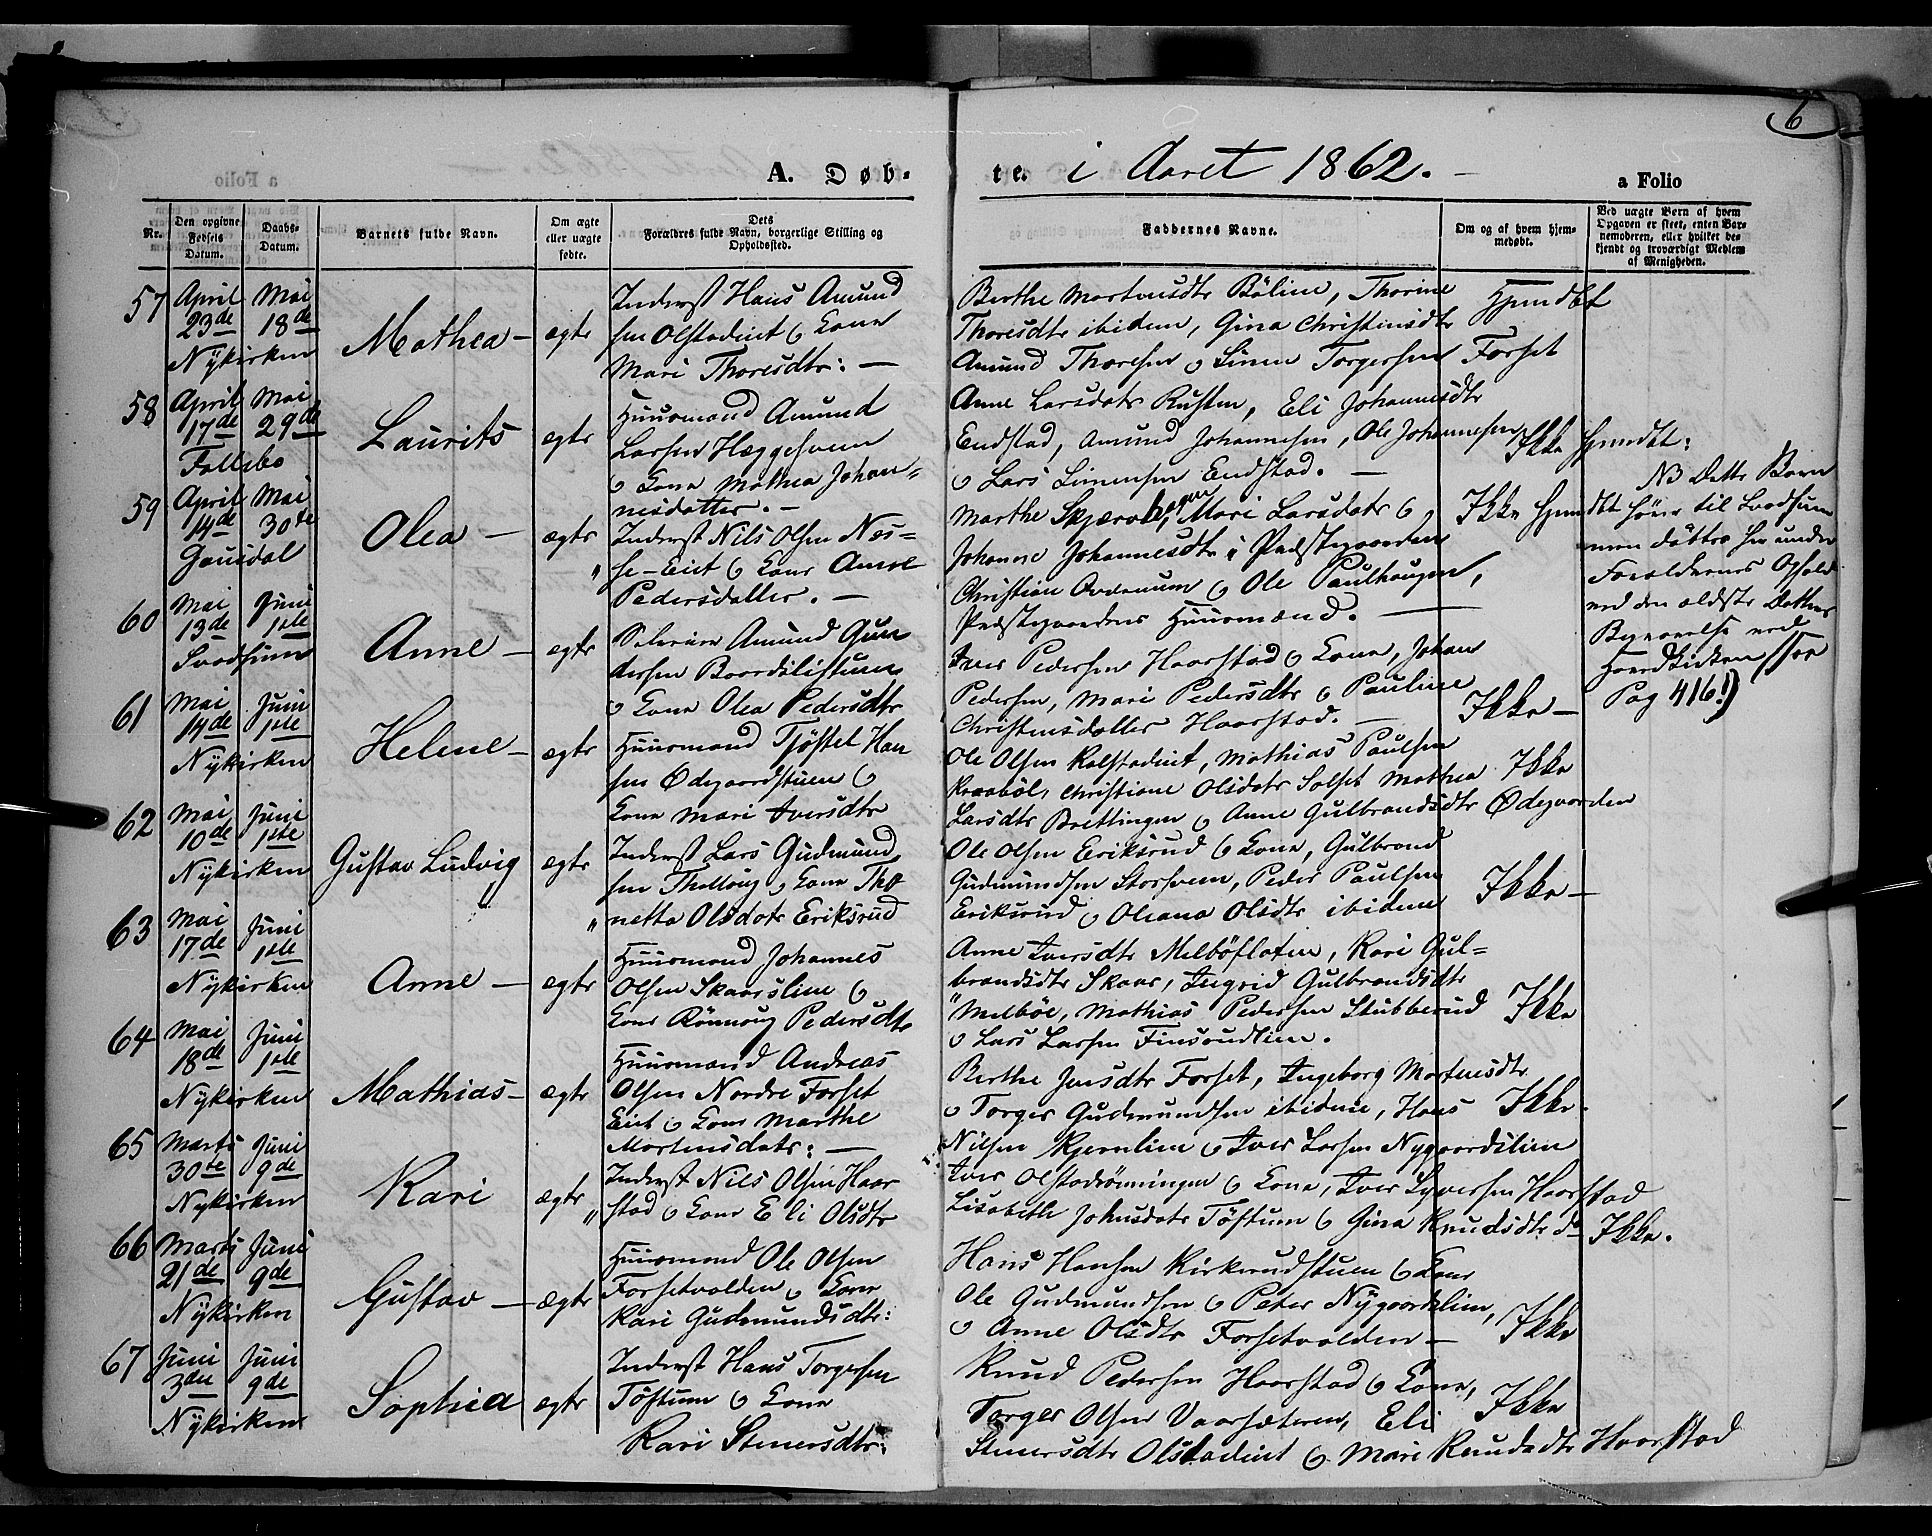 6
A. Døb-
te. i Aaret 1862.
a Folio
Nr.
Den opgivne
Fødsels
Datum.
Daabs-
Datum.
Barnets fulde Navn.
Om ægte
eller uægte
fødte.
Dets
Forældres fulde Navn, borgerlige Stilling og
Opholdssted.
Faddernes Navne.
Om og af hvem hjem-
medøbt.
Ved uægte Børn af hvem
Opgaven er skeet, enten Bar-
nemoderen, eller hvilket be-
kjendt og troværdigt Medlem
af Menigheden.
57
April
23de
Mai
18de
Nykirken
Mathea
ægte
Inderst Hans Amund
sen Olstadeiet og Kone
Mari Thoresdtr:
Berthe Mortensdtr Böline, Thorine
Thoresdtr ibidem, Gina Christensdtr
Amund Thoresen og Simen Torgersen Forset
Hjemdbt
58
April
17de
Mai
29de
Follebo
Laurits
ægte
Huusmand Amund
Larsen Hæggesveen
og Kone Mathea Johan-
nisdatter.
Anne Larsdatr Rusten, Eli Johannesdtr
Endstad, Amund Johannesen, Ole Johannesen
og Lars Simensen Endstad.
Ikke Hjemdbt:
59
April
14de
Mai
30te
Gausdal
Olea
ægte
Inderst Nils Olsen Næs-
se-Eiet og Kone Anne
Pedersdatter.
Marthe Mari Larsdatr og
Johanne Johannesdtr i Præstegaarden
Christian og Ole Paulhaugen,
Præstegaardens Huusmænd.
Ikke Hjemdbt
NB Dette Barn
hører til Svadsum
men døbtes her under
Forældrenes Ophold
ved den ældste Datters
Begravelse ved
Hovedkirken (See
Pag 416!)
60
Mai
13de
Juni
1ste
Svadsum
Anne
ægte
Selveier Amund Gun
dersen Baardslistuen
og Kone Olea Pedersdtr
Iver Pedersen Haarstad og Kone, Johan
Pedersen, Mari Pedersdtr og Pauline
Christensdatter Haarstad.
Ikke
61
Mai
14de
Juni
1ste
Nykirken
Helene
ægte
Huusmand Tjöstel Han
sen Ødegaardstuen og
Kone Mari Iversdtr
Ole Olsen Kalstadeiet, Mathias Paulsen
Kraaböl, Christiane Olsdatr Solset Mathea
Larsdtr Brettingen og Anne Gulbrandsdtr Ødegaarden
Ikke
62
Mai
10de
Juni
1ste
Nykirken
Gustav Ludvig
ægte
Inderst Lars Gudmund
sen Thallaug og Kone Tho
netta Olsdatr Eriksrud
Ole Olsen Eriksrud og Kone, Gulbrand
Gudmundsen Storsveen, Peder Paulsen
Eriksrud og Oleana Olsdtr ibidem
Ikke
63
Mai
17de
Juni
1ste
Nykirken
Anne
ægte
Huusmand Johannes
Olsen Skaarslien og
Kone Rönnaug Pedersdtr
Anne Iversdtr Melböflaten, Kari Gul-
brandsdtr Skaar, Ingrid Gulbrandsdtr
Melböe, Mathias Pedersen Stubberud
og Lars Larsen Finsrudlien.
Ikke
64
Mai
18de
Juni
1ste
Nykirken
Mathias
ægte
Huusmand Andreas
Olsen Nordre Forset
Eiet og Kone Marthe
Mortensdatr:
Berthe Jensdtr Forset, Ingeborg Mortensdtr
og Torger Gudmundsen ibidem, Hans
Nilsen Kjernlien og Iver Larsen Nygaardslien
Ikke
65
Marts
30te
Juni
9de
Nykirken
Kari
ægte
Inderst Nils Olsen Haar
stad og Kone Eli Olsdtr
Iver Olstadrönningen og Kone, Iver Syversen Haarstad
Lisabeth Johnsdatr Töftum og Gina Knudsdtr do
Ikke.
66
Marts
21de
Juni
9de
Nykirken
Gustav
ægte
Huusmand Ole Olsen
Forsetvolden og Kone
Kari Gudmundsdtr:
Hans Hansen Kirkerudstuen og Kone
Ole Gudmundsen og Peter Nygaardslien,
og Anne Olsdtr Forsetvolden
Ikke
67
Juni
3die
Juni
9de
Nykirken
Sophia
ægte
Inderst Hans Torgersen
Töftum og Kone
Kari Stenersdtr:
Knud Pedersen Haarstad og Kone,
Torger Olsen Vaarsæteren, Eli
Stenersdtr Olstadeiet og Mari Knudsdtr Haarstad
Ikke